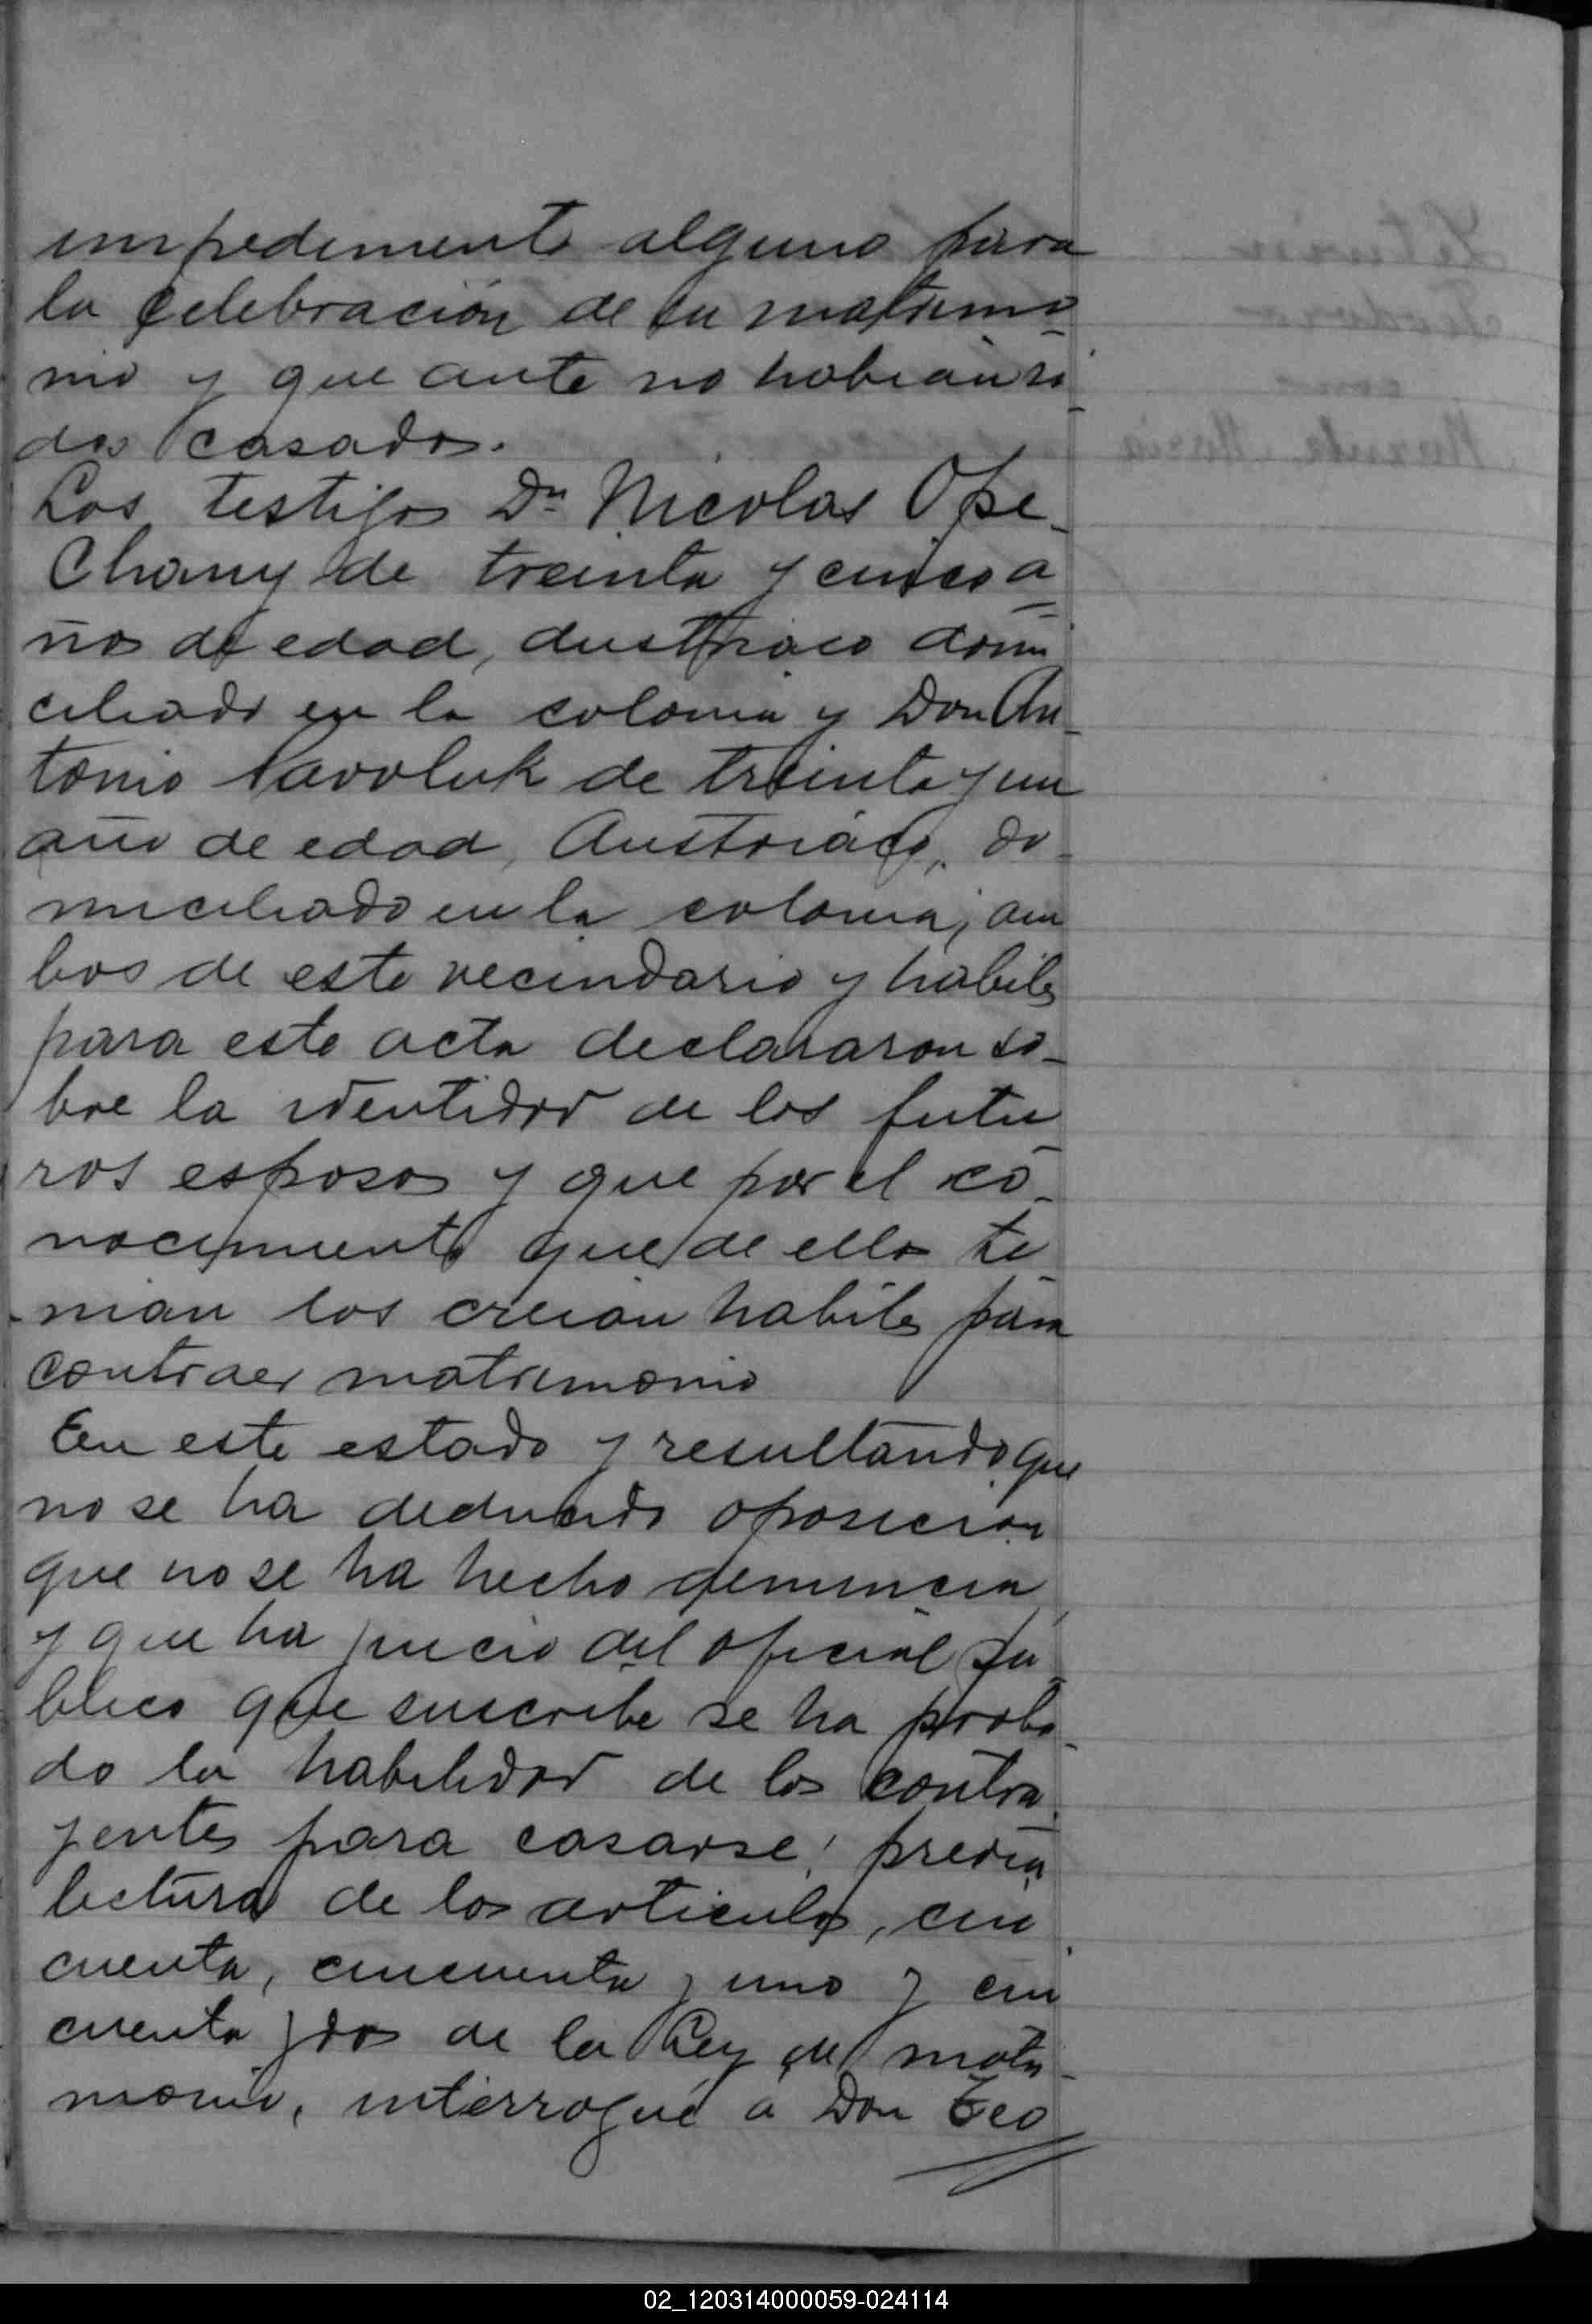 impedimento alguno para
la celebración de su matrimo-
nio y que ante no habian si-
dos casados.
Los testigos Dn Nicolas Ope-
Chany de treinta y cinco a-
ños de edad, austriaco domi
ciliado en la colonia y Don An-
tonio Pavoluk de treinta y un
año de edad, Austriaco, do-
miciliado en la colonia, am
bos de este vecindario y habiles
para este acto declararon so-
bre la identidad de los futu
ros esposos y que por el co-
nocimiento que de ellos te-
nian los creian habiles para
contraer matrimonio
En este estado y resultando que
no se ha deducido oposicion
que no se ha hecho denuncia,
y que ha juicio del oficial Pu-
blico que suscribe se ha proba-
do la habilidad de los contra-
yentes para casarse; previa
lectura de los articulos, cin
cuenta, cincuenta y uno y cin
cuenta y dos de la Ley de matri-
monio, interrogué á Don Teo
02_120314000059-024114